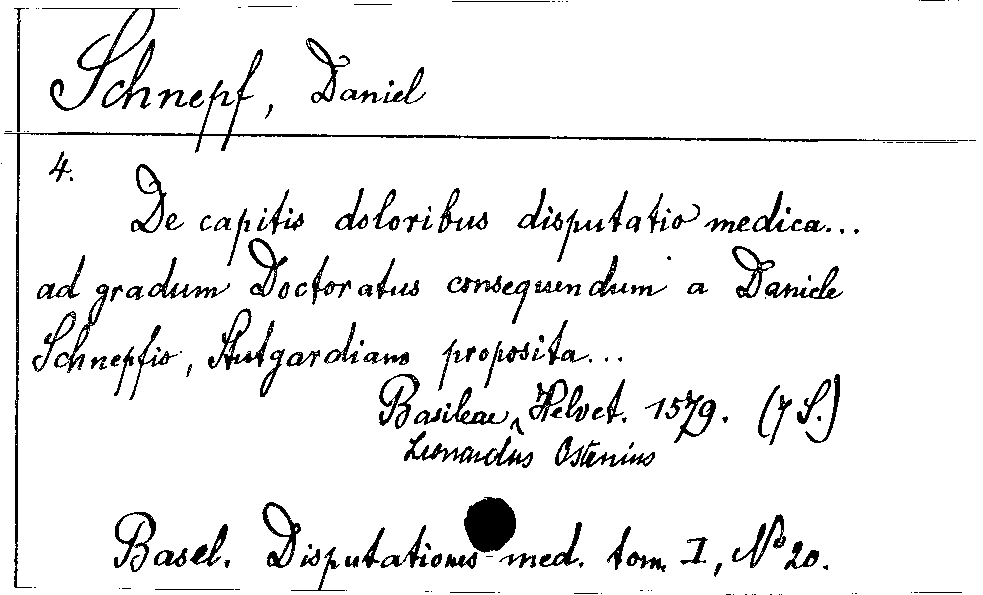 Schnepf, Daniel
4.
De capitis doloribus disputatio medica...
ad gradum Doctoratus consequendum a Daniele
Schnepfio, Stutgardiano proposita...
Basileae Helvet. 1579. (7 S.)
Leonardus Ostenius
Basel. Disputationes med. tom. I, No 20.